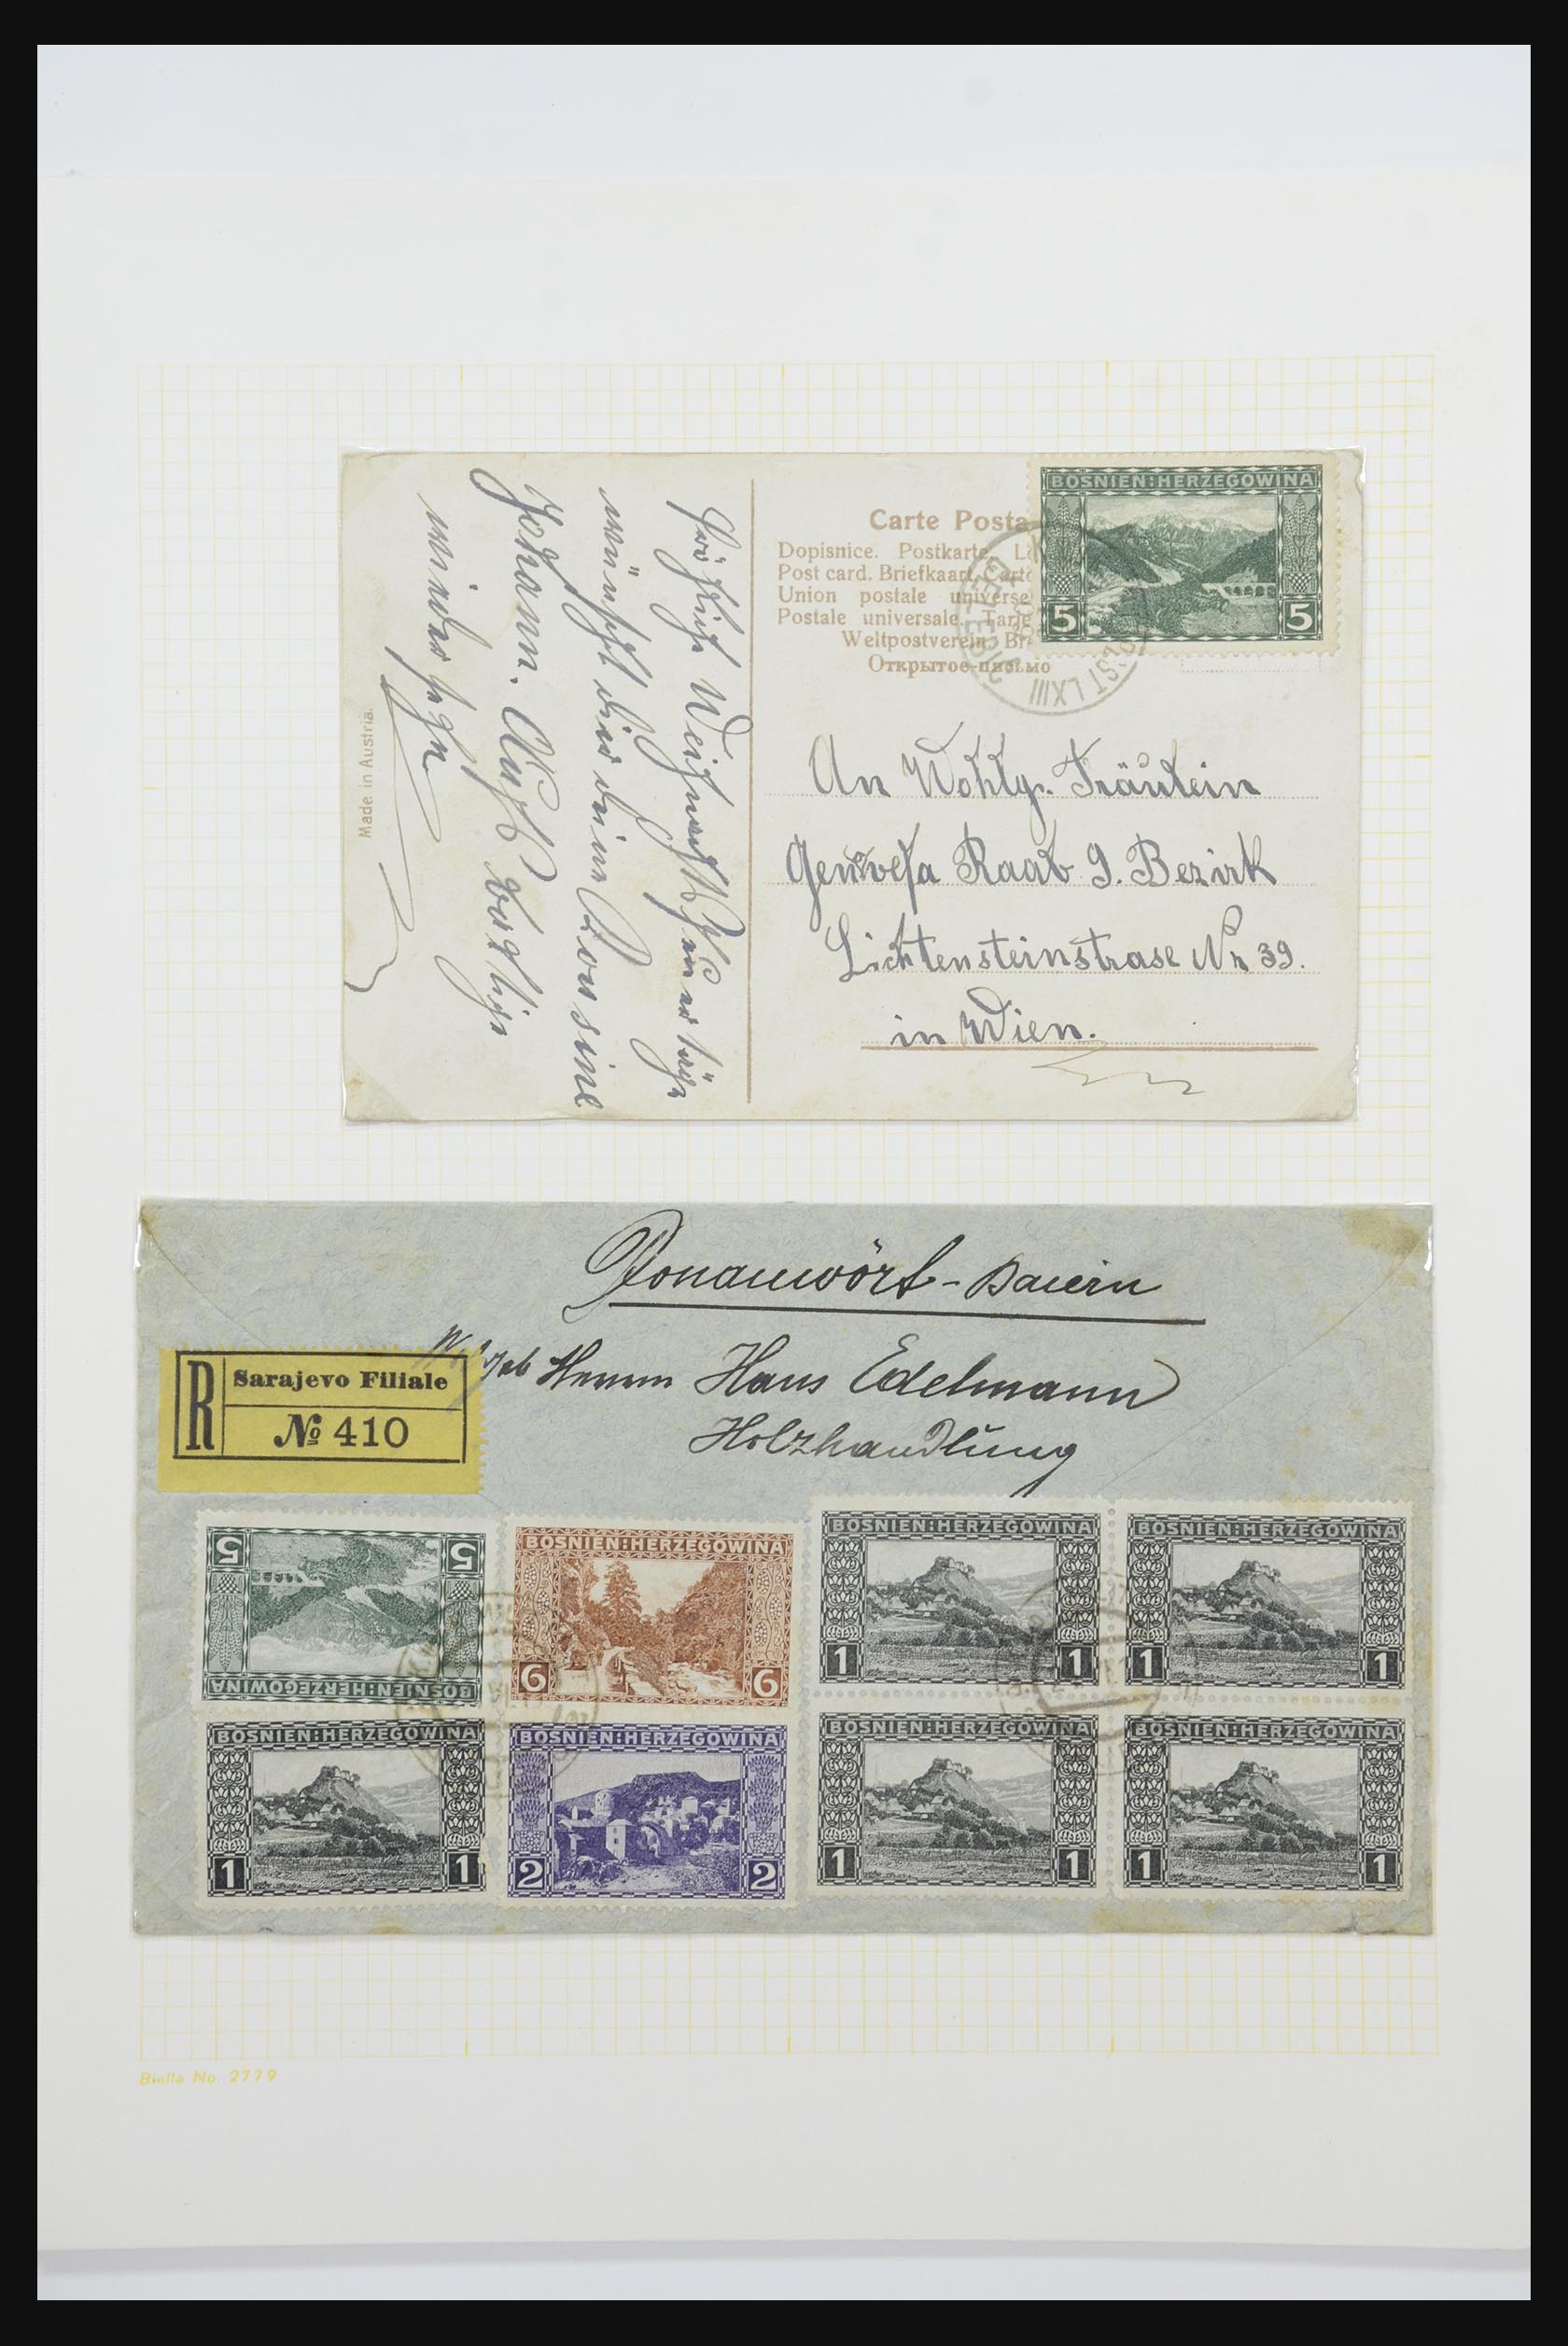 BOSNIEN:HERZEGOWINA
5 5
Carte Posta
Dopisnice. Postkarte. L
Post card. Briefkaart. Carto
Union postale universe
Postale universale. Tarje
Weltpostverein. Bri
Открытое письмо
ST LXIII
An Wohlg. Fräulein
Genovefa Raab 9. Bezirk
Lichtensteinstrase Nr 39.
in Wien.
Fröhliche Weihnachts
wünscht dir deine
Johann. Auch
Made in Austria.
Donauwört - Baiern
Herrn Hans Edelmann
Holzhandlung
R Sarajevo Filiale
№ 410
BOSNIEN:HERZEGOWINA
5 5
BOSNIEN:HERZEGOWINA
6 6
BOSNIEN:HERZEGOWINA
1 1
BOSNIEN:HERZEGOWINA
1 1
BOSNIEN:HERZEGOWINA
1 1
BOSNIEN:HERZEGOWINA
2 2
BOSNIEN:HERZEGOWINA
1 1
BOSNIEN:HERZEGOWINA
1 1
Biella No. 2779